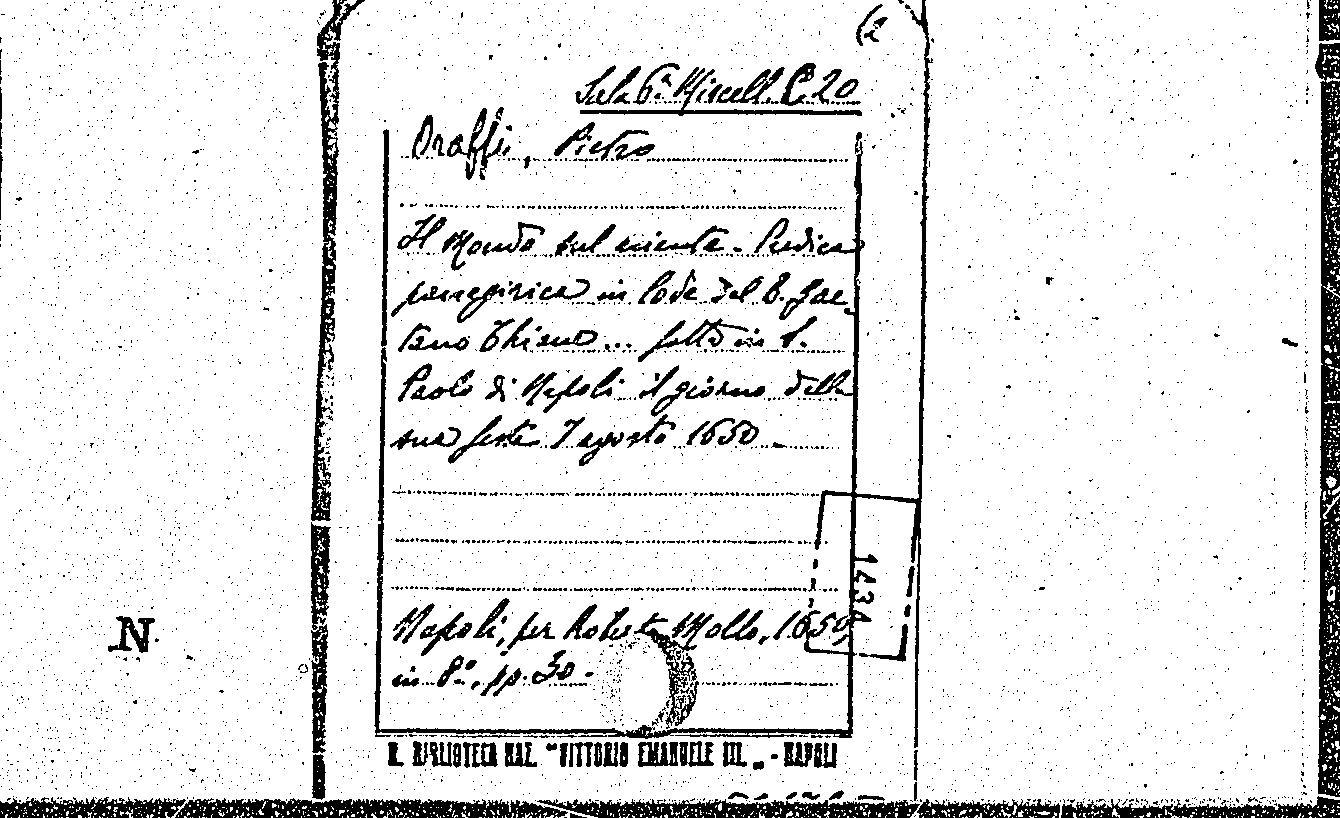 (2
Sala 6ª Miscell. C 20
Oraffi, Pietro
Il Mondo sul niente. Predica
panegirica in lode del B. Gae-
tano Thieno... fatta in S.
Paolo di Napoli il giorno della
sua festa 7 agosto 1650.
1434
N
Napoli, per Roberto Mollo, 1650,
in 8º, pp. 30.
R. BIBLIOTECA NAZ. "VITTORIO EMANUELE III„ - NAPOLI